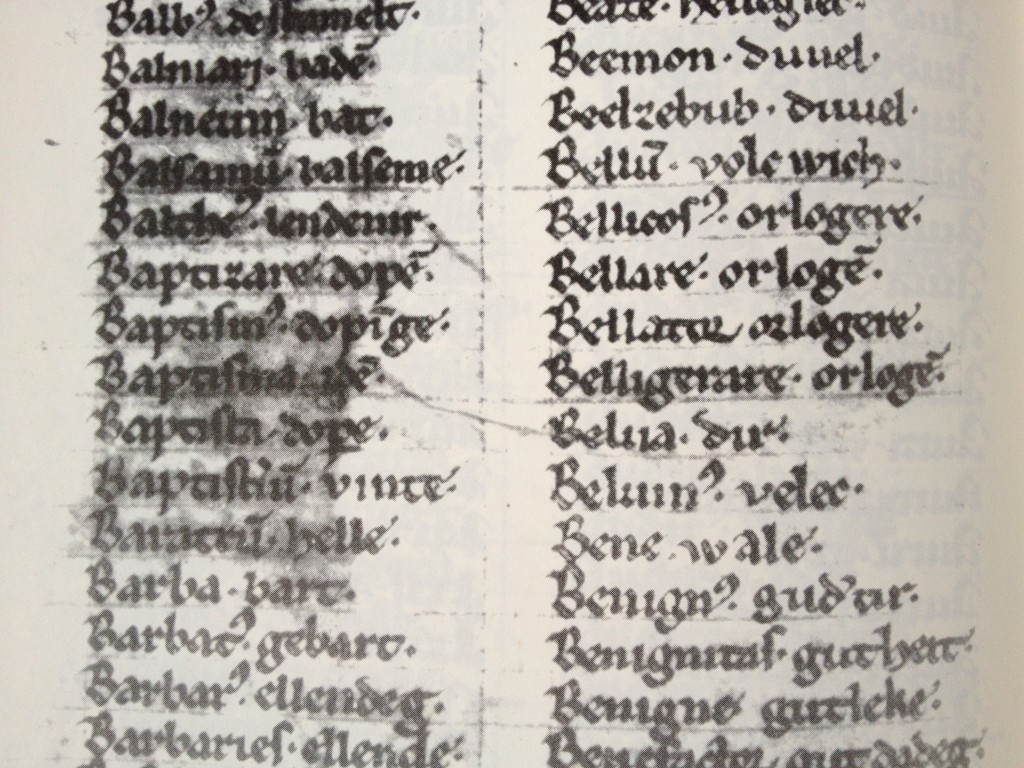 Balb⁹. de stamelt.
Balniari. badē.
Balneum. bat.
Balsamū. balseme.
Balthe⁹. lendenir.
Baptizare. dopē.
Baptism⁹. dopīge.
Baptisma. idē.
Baptista. dope.
Baptistiū. vinte.
Baratrū. helle.
Barba. bart.
Barbat⁹. gebart.
Barbar⁹. ellendeg.
Barbaries. ellende.
Beate.
Beemon. duuel.
Beelzebub. duuel.
Bellū. volc wich.
Bellicos⁹. orlogere.
Bellare. orlogē.
Bellator orlogere.
Belligerare. orlogē.
Belua. dir.
Beluin⁹. velec.
Bene. wale.
Benign⁹. gud'tir.
Benignitas. gutheit.
Benigne gutleke.
gutdadeg.